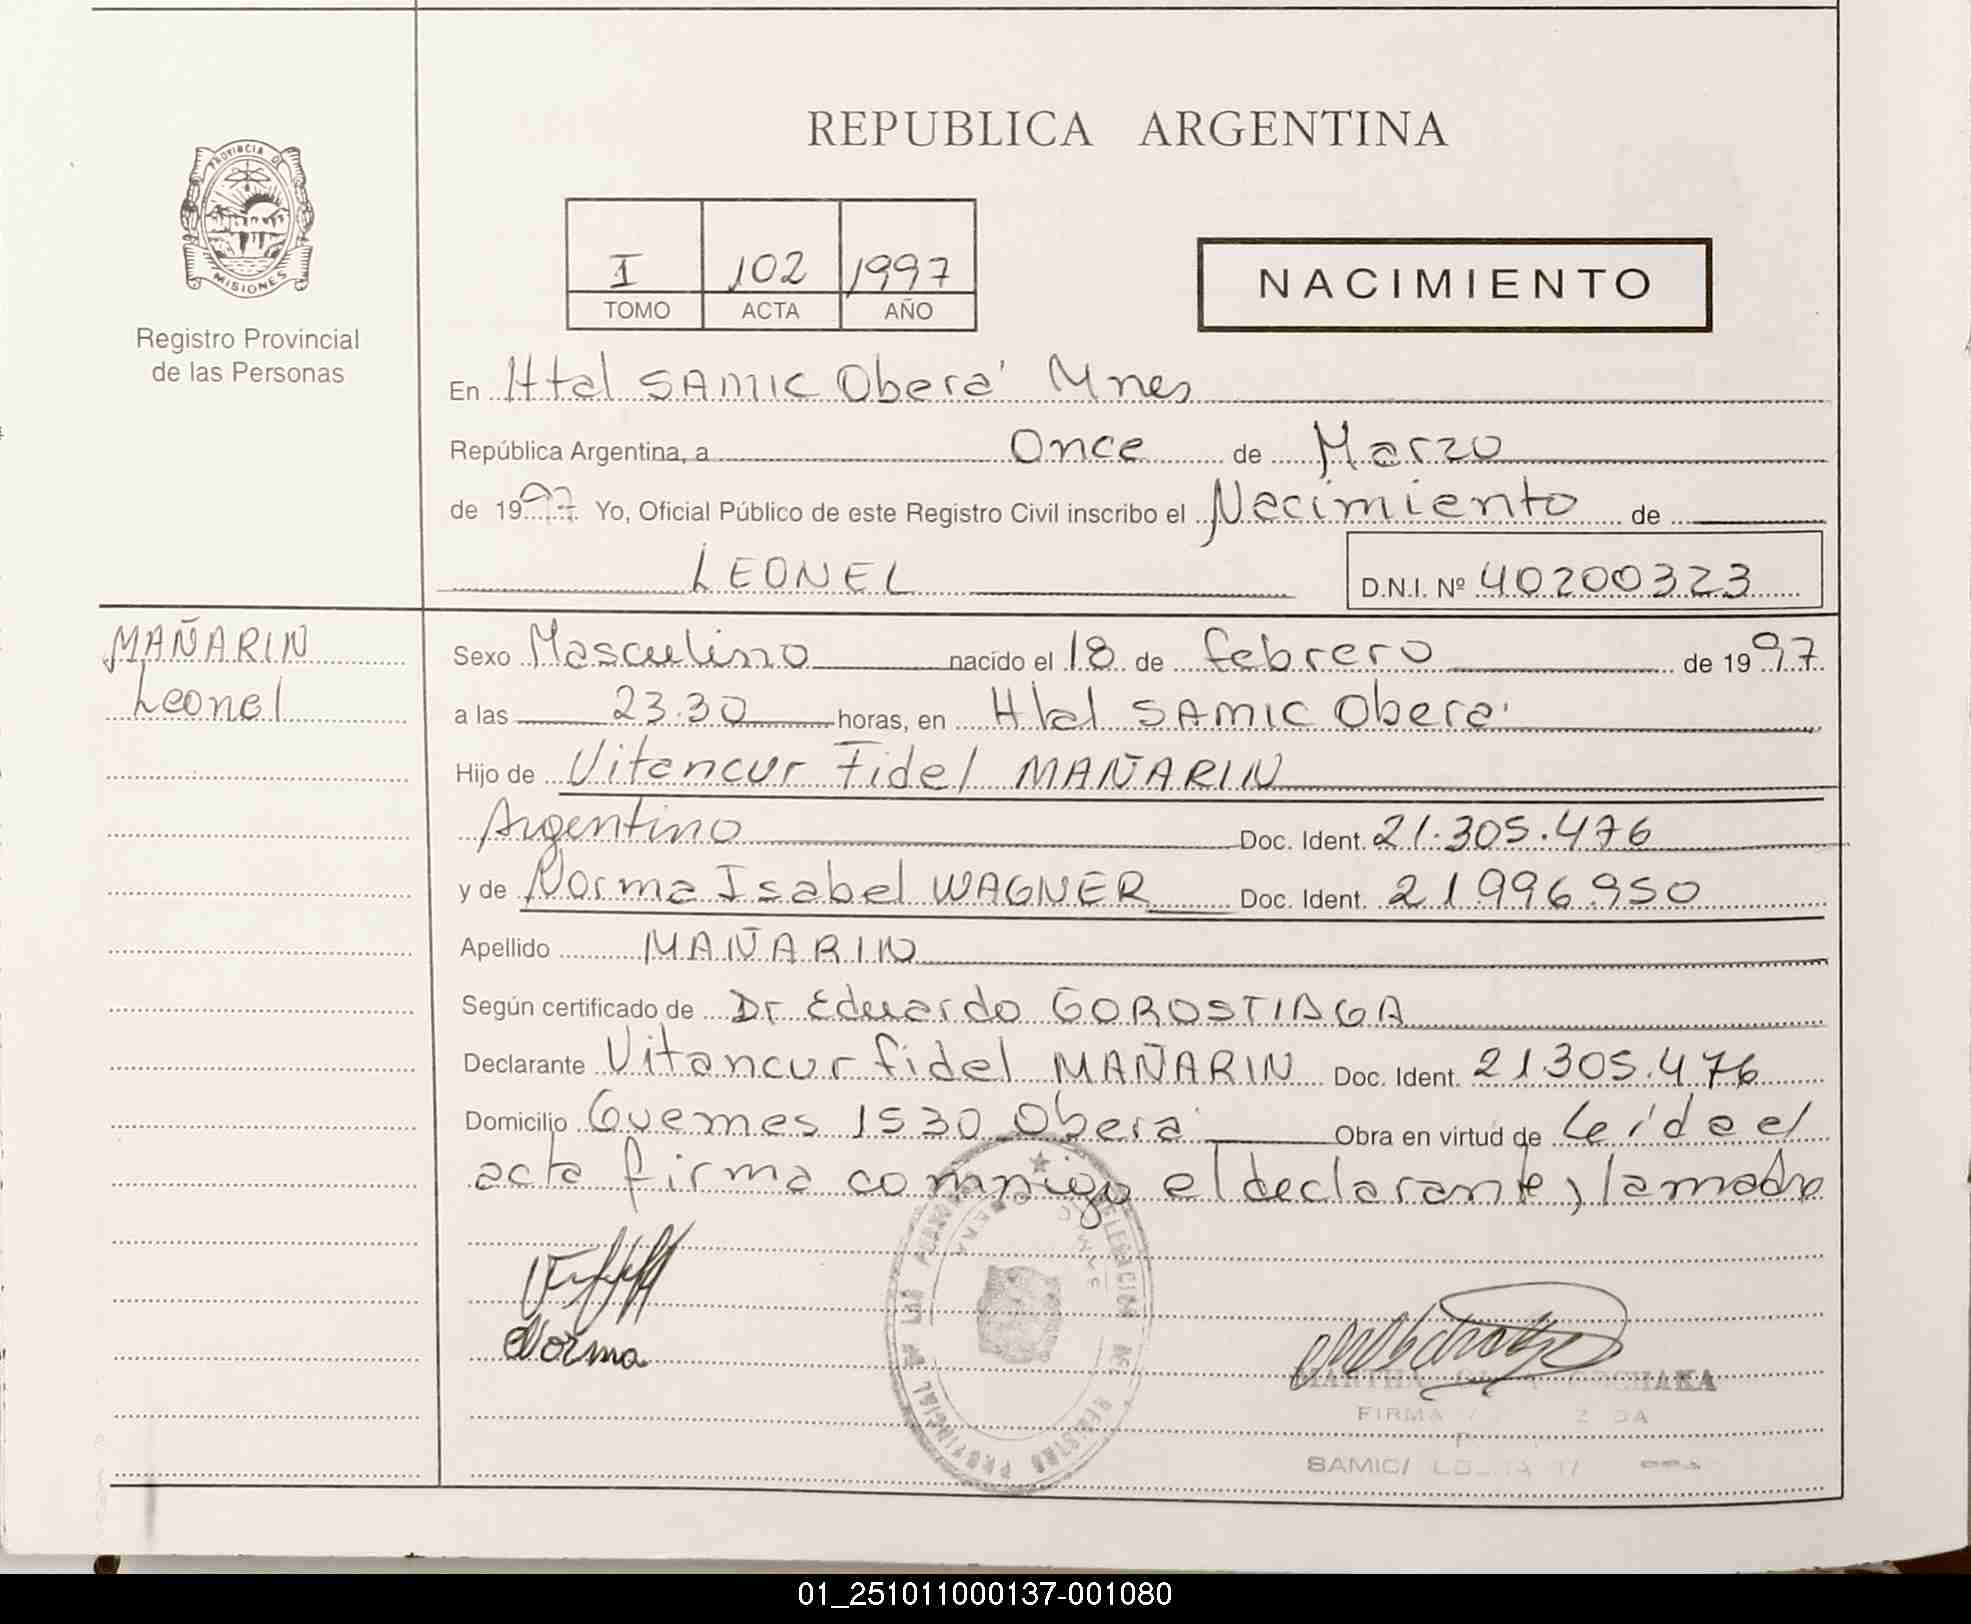 REPUBLICA ARGENTINA
PROVINCIA DE
MISIONES
Registro Provincial
de las Personas
I 102 1997
TOMO ACTA AÑO
NACIMIENTO
En Htal SAMIC Oberá Mnes
República Argentina, a Once de Marzo
de 1997 Yo, Oficial Público de este Registro Civil inscribo el Nacimiento de
LEONEL D.N.I. Nº 40200323
MAÑARIN
Leonel
Sexo Masculino nacido el 18 de febrero de 1997
a las 23.30 horas, en Htal SAMIC Oberá
Hijo de Vitancur Fidel MAÑARIN
Argentino Doc. Ident. 21.305.476
y de Norma Isabel WAGNER Doc. Ident. 21996.950
Apellido MAÑARIN
Según certificado de Dr Eduardo GOROSTIAGA
Declarante Vitancur fidel MAÑARIN Doc. Ident. 21305.476
Domicilio Guemes 1530 Oberá Obra en virtud de Leída el
acta firma conmigo el declarante y la madre
Norma
MARTHA
FIRMA
SAMIC/
01_251011000137-001080